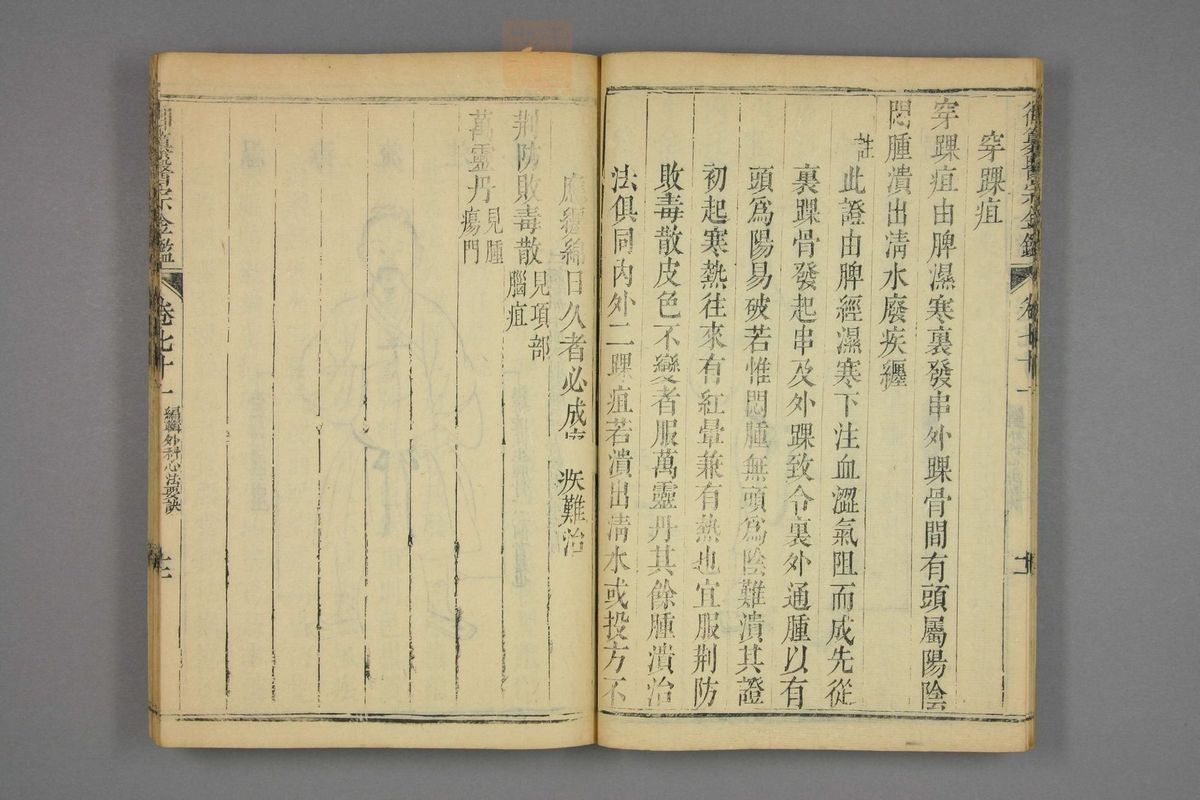 御纂醫宗金鑑 卷七十一 十二
穿踝疽
穿踝疽由脾濕寒裏發串外踝骨間有頭屬陽陰
悶腫潰出淸水廢疾纏
註此證由脾經濕寒下注血澀氣阻而成先從
裏踝骨發起串及外踝致令裏外通腫以有
頭爲陽易破若惟悶腫無頭爲陰難潰其證
初起寒熱往來有紅暈兼有熱也宜服荆防
敗毒散皮色不變者服萬靈丹其餘腫潰治
法俱同內外二踝疽若潰出淸水或投方不
應纏綿日久者必成廢疾難治
荆防敗毒散見項部腦疽
萬靈丹見腫瘍門
御纂醫宗金鑑 卷七十一 編輯外科心法要訣